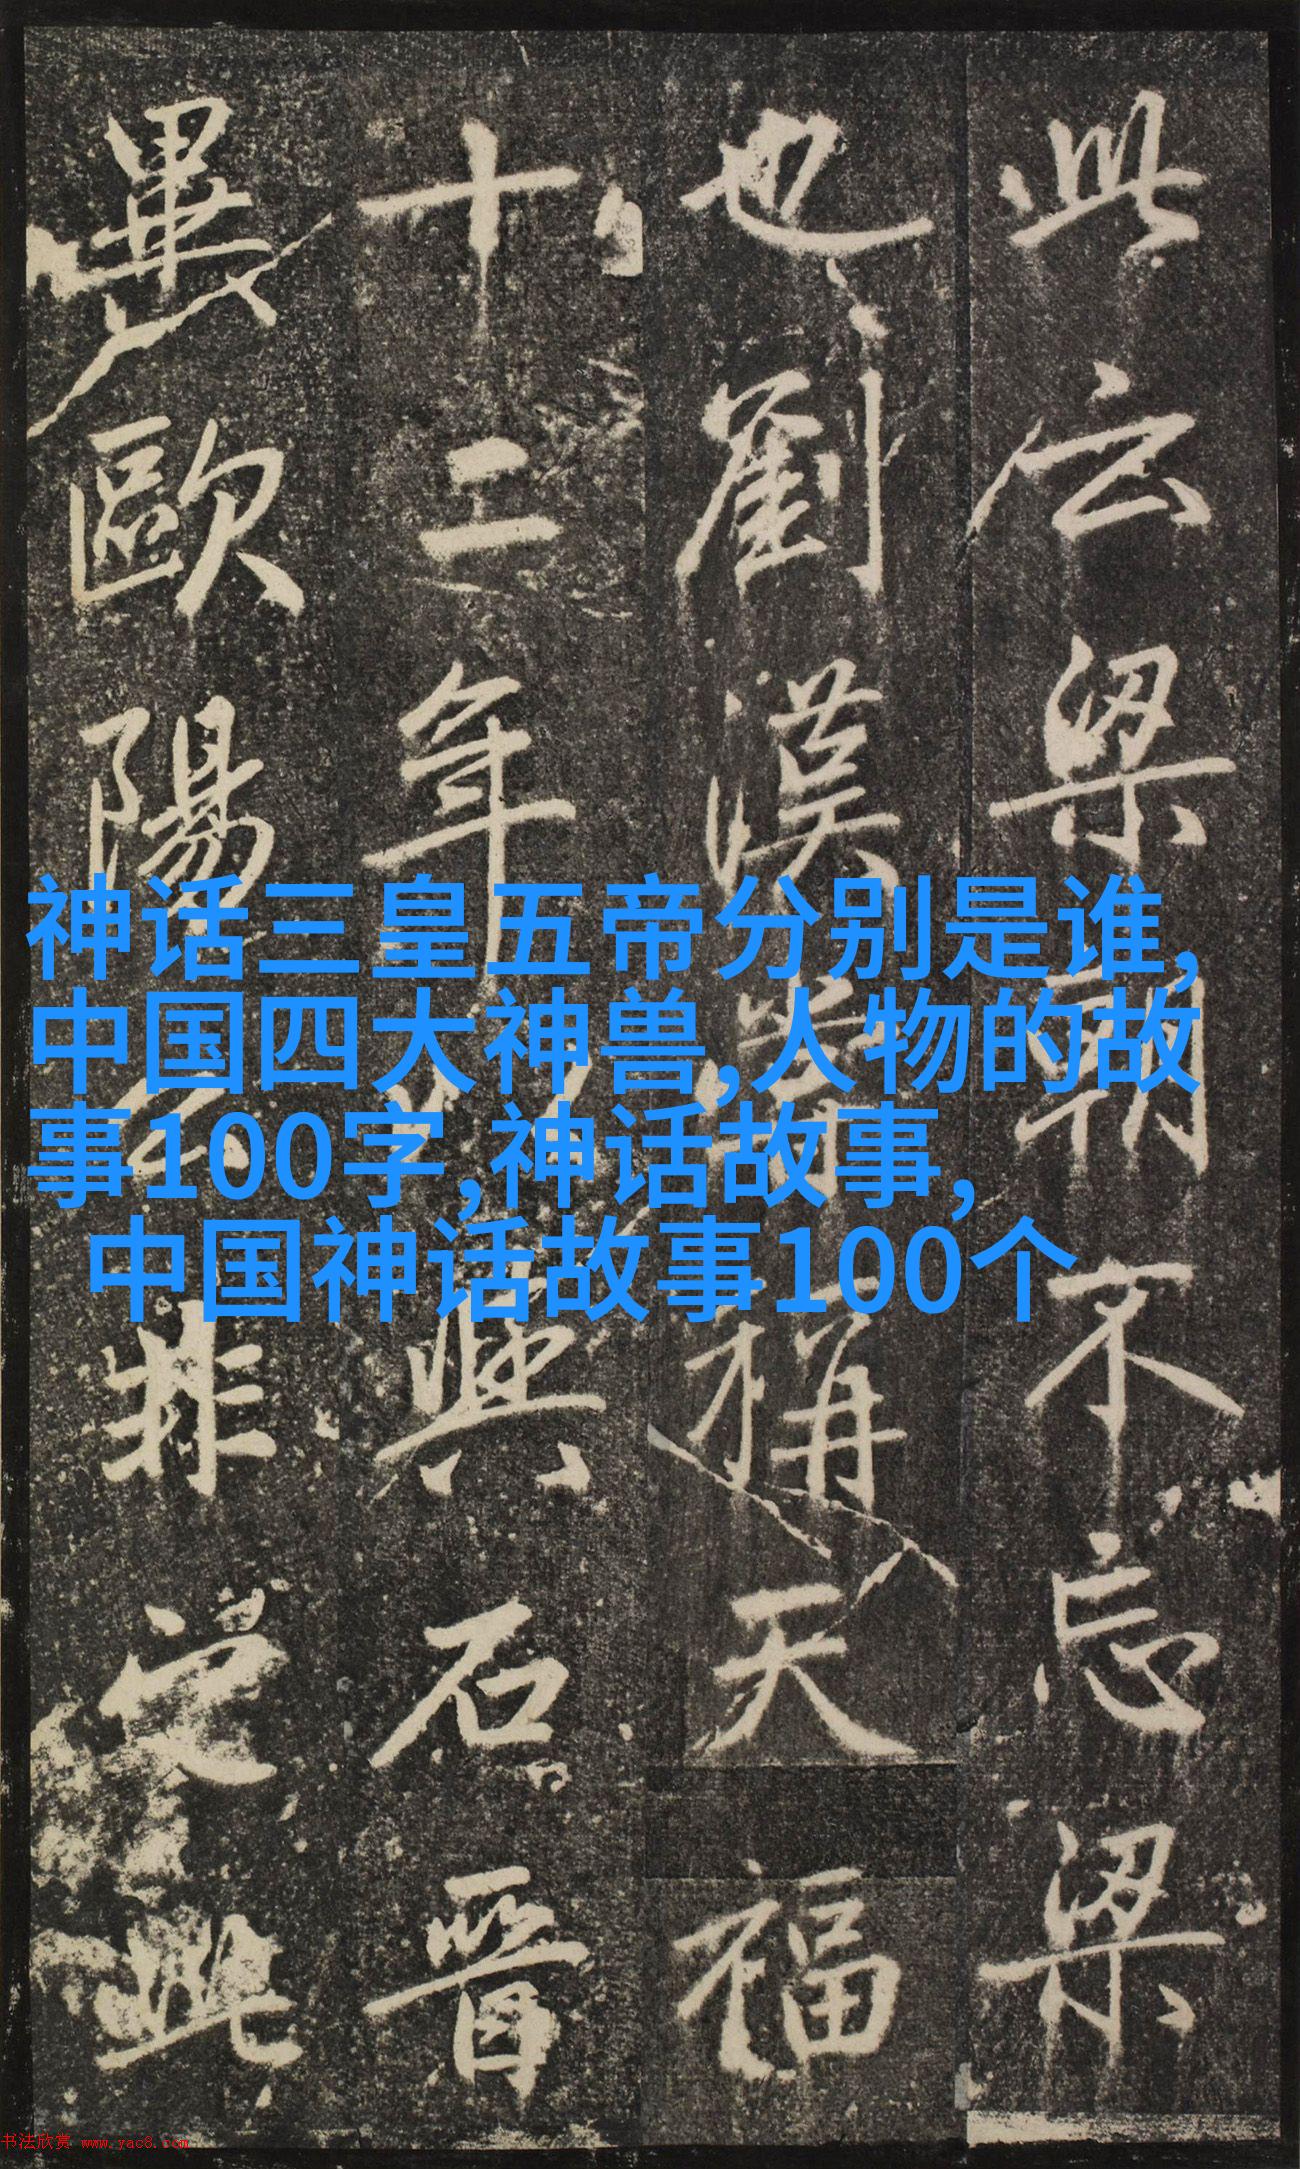 此云梁朝不忘梁
也劉漢稱天福
十二年與石晉
畢歐陽公非此
神话三皇五帝分别是谁,
中国四大神兽,人物的故
事100字,神话故事,
中国神话故事100个
书法欣赏 www.yac8.com